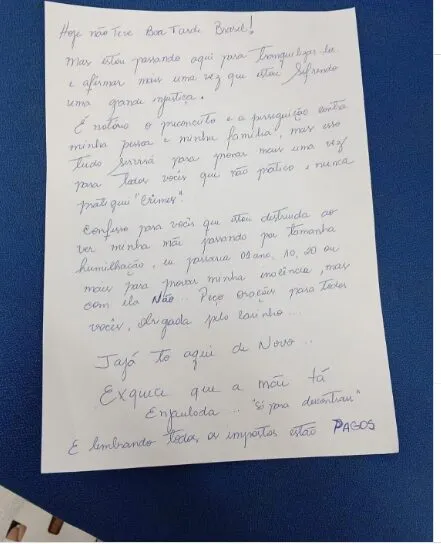 Hoje não Teve Boa Tarde Brasil!
Mas estou passando aqui para tranquilizar-la
e afirmar mais uma vez que estou Sofrendo
uma grande injustiça.
É notório o preconceito e a perseguição contra
minha pessoa e minha família, mas isso
tudo servirá para provar mais uma vez
para todos vocês que não pratico, nunca
pratiquei "Crimes".
Confesso para vocês que estou destruida ao
ver minha mãe passando por tamanha
humilhação, eu passaria 01 ano, 10, 20 ou
mais para provar minha inocência, mas
com ela Não... Peço orações para todos
vocês, obrigada pelo carinho...
Jajá to aqui de Novo..
Exqueci que a mãe tá
Enjaulada... "só para descontrair"
E lembrando todos os impostos estão PAGOS